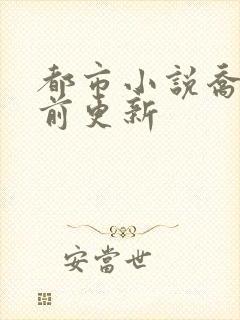 都市小説喬
前更新
安當世